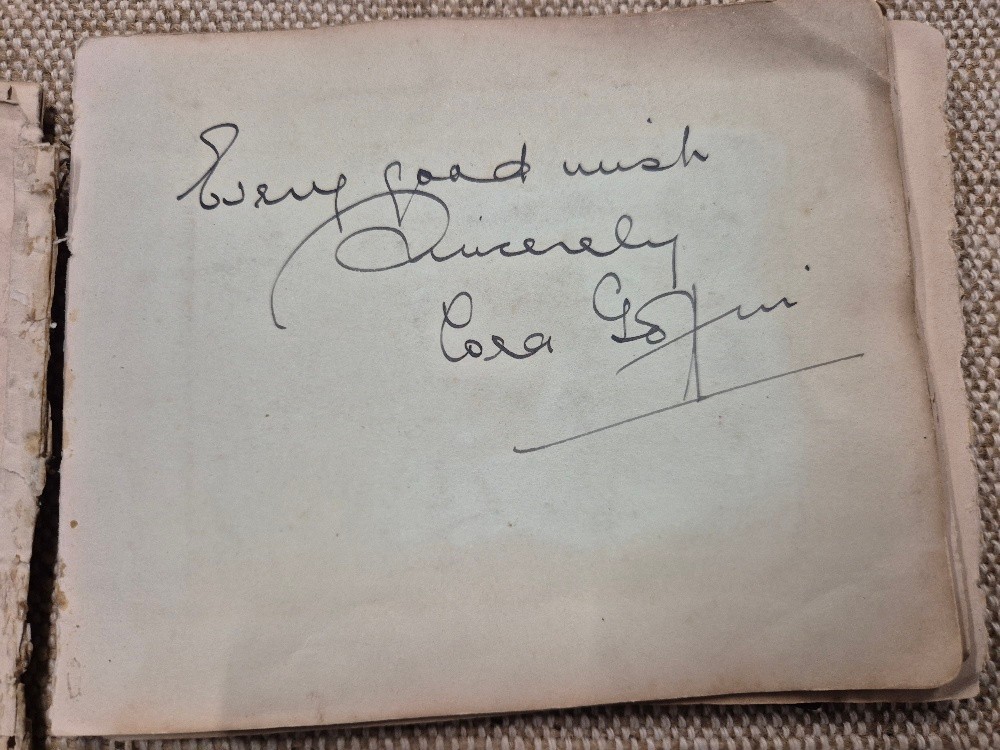 Every good wish
Sincerely
Cora Goffin